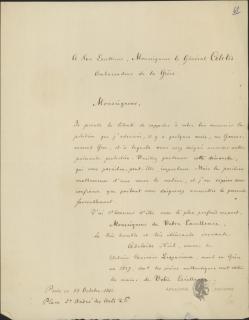 A Son Excellence, Monseigneur le Général Coletis
Ambassadeur de la Grèce
Monseigneur,
Je prends la liberté de rappeler à votre souvenir la
pétition que j'adressai, il y a quelques mois, au Gouver-
nement Grec, et à laquelle vous avez daigné accorder votre
puissante protection. Veuillez pardonner cette démarche,
qui vous paraîtra, peut-être, importune. Mais la position
malheureuse d'une veuve la motive, et j'en espère avec
confiance que portant vous daignerez accueillir la présente
favorablement.
J'ai l'honneur d'être avec le plus profond respect,
Monseigneur de Votre Excellence,
La très humble et très obéissante servante
Adélaïde
veuve de
mort en Grèce
en 1827, dont les pièces authentiques sont entre
les mains de Votre Excellence.
Paris ce 19 Octobre 1841
Place St André des Arts